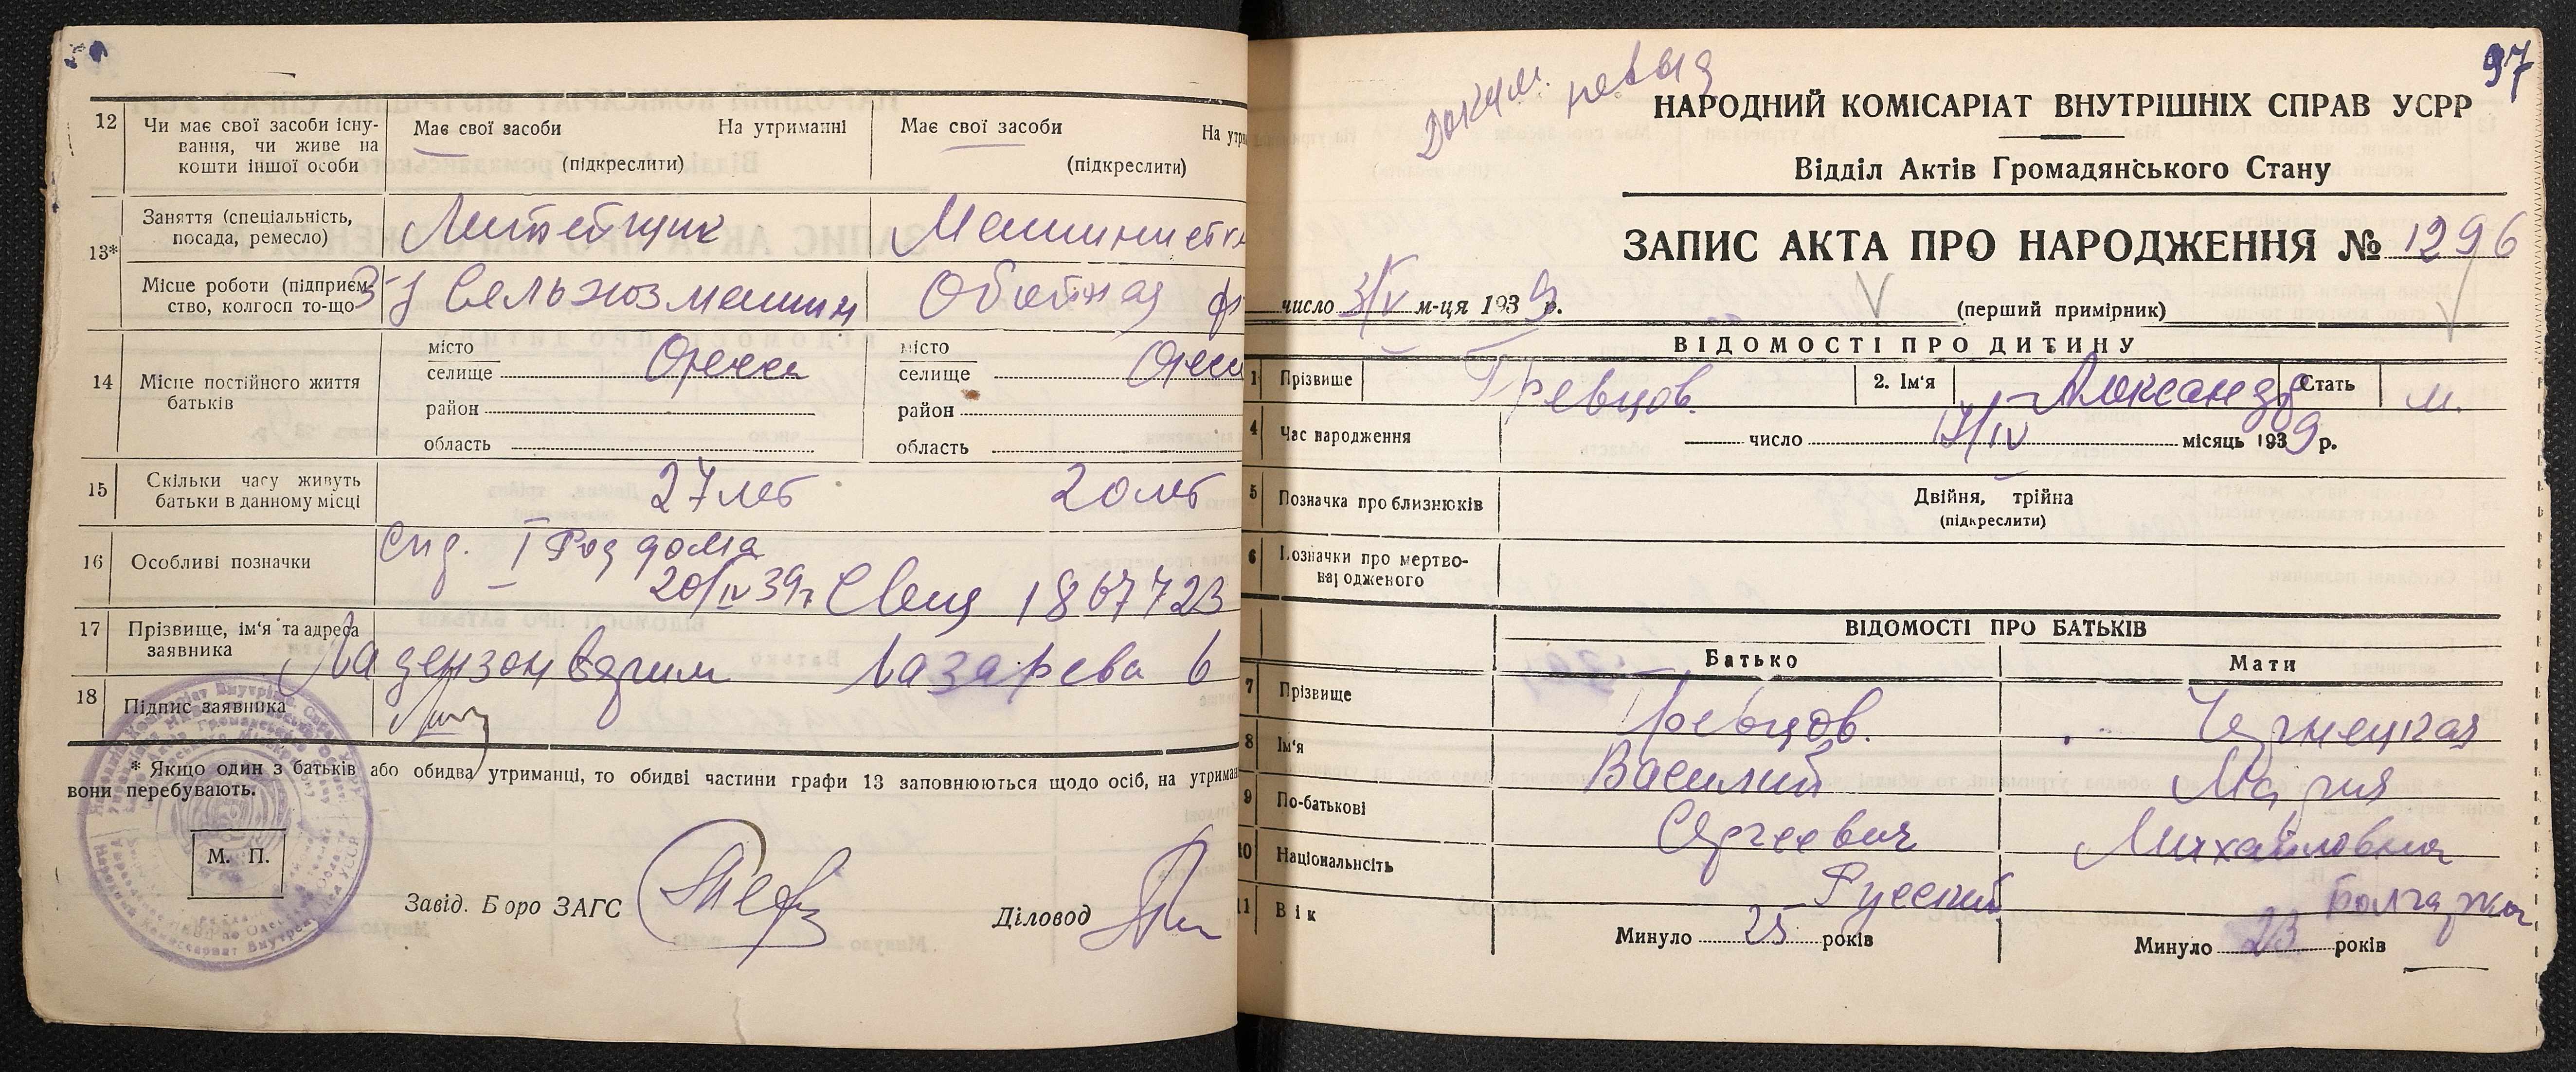 12 Чи має свої засоби існу-
вання, чи живе на
кошти іншої особи
Має свої засоби На утриманні
(підкреслити)
Має свої засоби На утри
(підкреслити)
13* Заняття (спеціальність,
посада, ремесло)
Литейщик Машинистка
Місце роботи (підприєм-
ство, колгосп то-що
З-д Сельхозмашин Обойная ф
14 Місце постійного життя
батьків
місто
селище Одесса
район
область
місто
селище Одесс
район
область
15 Скільки часу живуть
батьки в данному місці
27 лет 20 лет
16 Особливі позначки
Спр. I Род дома
20/IV 39г. Свид 1867723
17 Прізвище, ім'я та адреса
заявника
Ладензон Вадим Лазарева 6
18 Підпис заявника
* Якщо один з батьків або обидва утриманці, то обидві частини графи 13 заповнюються щодо осіб, на утриман
вони перебувають.
М. П.
Завід. Боро ЗАГС Діловод
97
Докум.
НАРОДНИЙ КОМІСАРІАТ ВНУТРІШНІХ СПРАВ УСРР
Відділ Актів Громадянського Стану
ЗАПИС АКТА ПРО НАРОДЖЕННЯ № 1296
число 3/V м-ця 1939 р.
(перший примірник)
ВІДОМОСТІ ПРО ДИТИНУ
1 Прізвище Гревцов. 2. Ім'я Александр Стать м.
4 Час народження число 17/IV місяць 1939 р.
5 Позначка про близнюків Двійня, трійна
(підкреслити)
6 Позначки про мертво-
народженого
ВІДОМОСТІ ПРО БАТЬКІВ
Батько Мати
7 Прізвище Гревцов. Чернецкая
8 Ім'я Василий Мария
9 По-батькові Сергеевич Михайловна
10 Національність Русский Болгарка
11 Вік Минуло 25 років Минуло 23 років